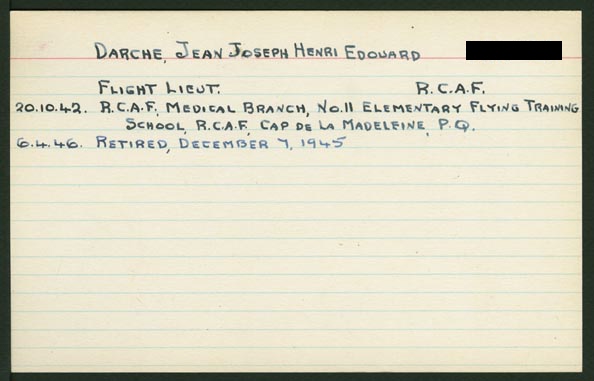 DARCHE, JEAN JOSEPH HENRI EDOUARD
FLIGHT LIEUT. R.C.A.F.
20.10.42. R.C.A.F., MEDICAL BRANCH, NO.11 ELEMENTARY FLYING TRAINING
SCHOOL, R.C.A.F., CAP DE LA MADELEINE, P.Q.
6.4.46. RETIRED, DECEMBER 7, 1945